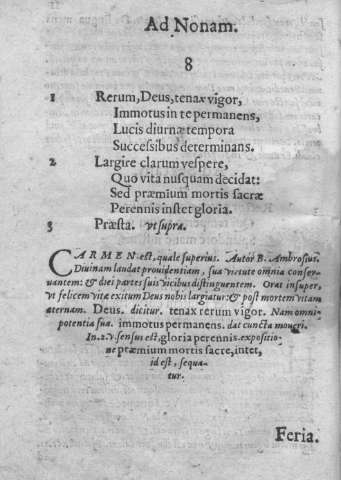 Ad Nonam.
8
1 Rerum, Deus, tenax vigor,
Immotus in te permanens,
Lucis diurnæ tempora
Succeſsibus determinans.
2 Largire clarum veſpere,
Quo vita nuſquam decidat:
Sed præmium mortis sacræ
Perennis inſtet gloria.
3 Præſta. vt ſupra.
CARMEN eſt, quale ſuperius. Autor B. Ambroſius.
Diuinam laudat prouidentiam, ſua virtute omnia conſer-
uantem: & diei partes ſuis vicibus diſtinguentem. Orat inſuper,
vt felicem vitæ exitum Deus nobis largiatur: & poſt mortem vitam
æternam. Deus. dicitur. tenax rerum vigor. Nam omni-
potentia ſua. immotus permanens. dat cuncta moueri.
In .2. v. ſenſus eſt, gloria perennis. expoſitio-
ne præmium mortis ſacre, inſtet,
id eſt, ſequa-
tur.
Feria.